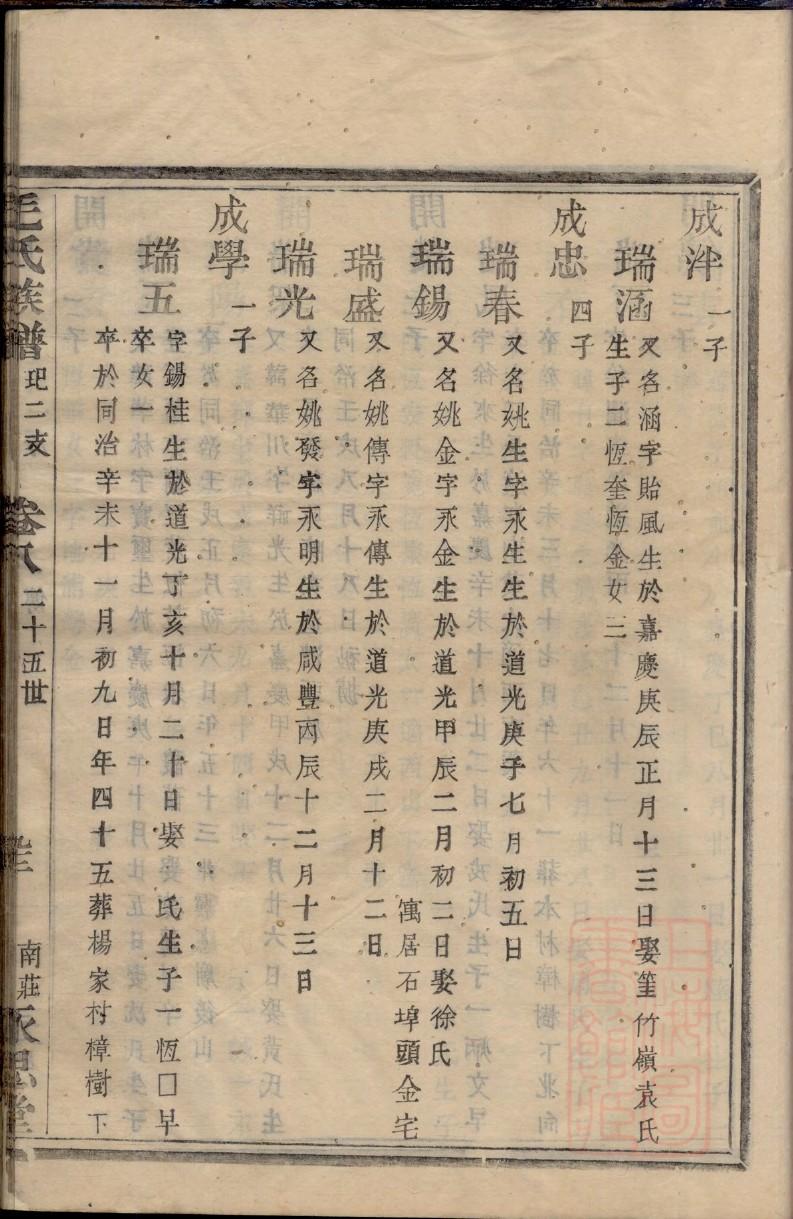 成泮 一子
瑞涵 又名涵字貽風生於嘉慶庚辰正月十三日娶筀竹嶺袁氏
生子二恆奎恆金女三
成忠 四子
瑞春 又名姚生字永生生於道光庚子七月初五日
瑞錫 又名姚金字永金生於道光甲辰二月初二日娶徐氏
寓居石埠頭金宅
瑞盛 又名姚傳字永傳生於道光庚戌二月十二日
瑞光 又名姚發字永明生於咸豐丙辰十二月十三日
成學 一子
瑞五 字錫桂生於道光丁亥十月二十日娶 氏生子一恆口早
卒女一
卒於同治辛未十一月初九日年四十五葬楊家村樟樹下
毛氏族譜 玘二支 卷八 二十五世 南莊 永思堂